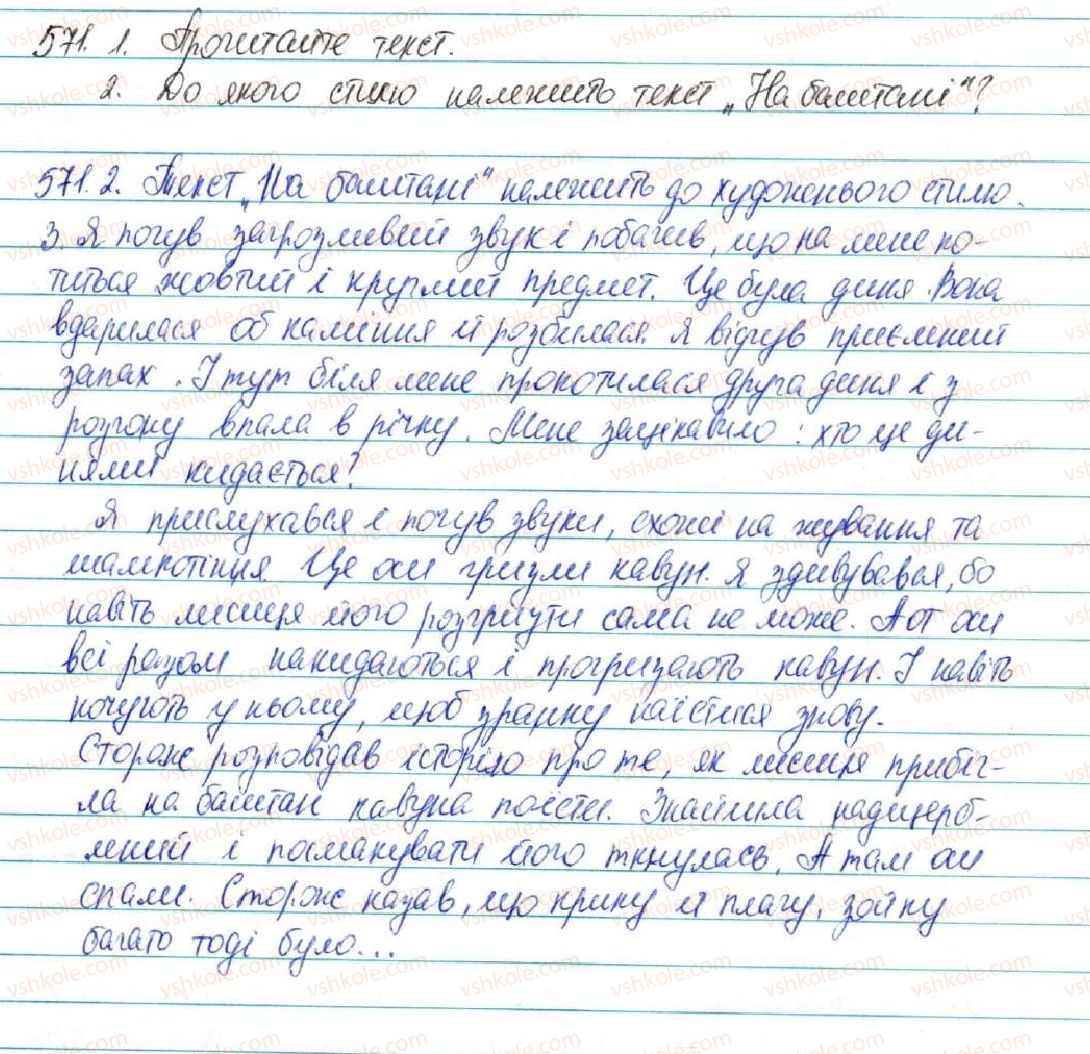 571. 1. Прочитайте текст.
2. До якого стилю належить текст „На баштані"?
571. 2. Текст „На баштані" належить до художнього стилю.
3. Я почув загрозливий звук і побачив, що на мене ко-
титься жовтий і круглий предмет. Це була диня. Вона
вдарилася об каміння й розбилася. Я відчув приємний
запах. І тут біля мене прокотилася друга диня і з
розгону впала в річку. Мене зацікавило: хто це ди-
нями кидається?
Я прислухався і почув звуки, схожі на жування та
шамкотіння Це оси гризли кавун. Я здивувався, бо
навіть лисиця його розгризти сама не може. А от оси
всі разом накидаються і прогризають кавун. І навіть
ночують у ньому, щоб зранку наїстися знову.
Сторож розповідав історію про те, як лисиця прибіг-
ла на баштан кавуна поїсти. Знайшла надщерб-
лений і поснданувати його ткнулась. А там оси
спали. Сторож казав, що крику й плачу, зойку
багато тоді було...